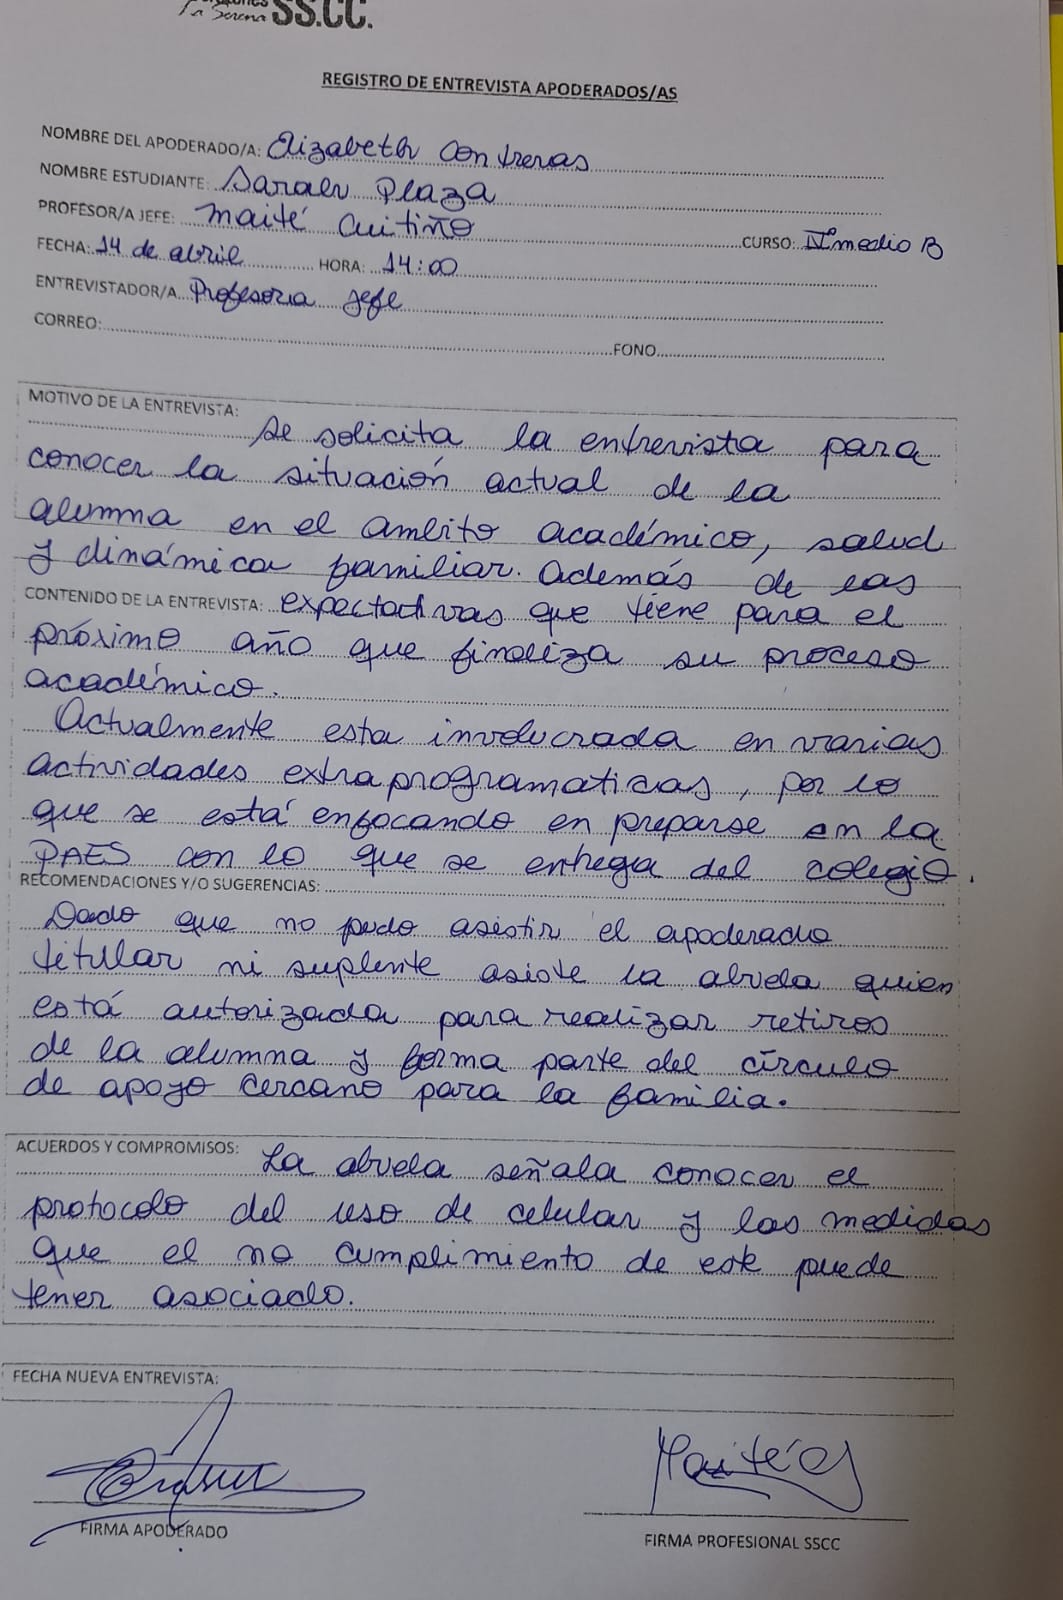 La Serena SS.CC.
REGISTRO DE ENTREVISTA APODERADOS/AS
NOMBRE DEL APODERADO/A: Elizabeth Contreras
NOMBRE ESTUDIANTE: Plaza
PROFESOR/A JEFE: Maité Cuitiño
CURSO: IV°medio B
FECHA: 14 de abril HORA: 14:00
ENTREVISTADOR/A Profesora jefe
CORREO: FONO
MOTIVO DE LA ENTREVISTA:
Se solicita la entrevista para
conocer la situación actual de la
alumna en el ambito académico, salud
y dinámica familiar. Además de las
CONTENIDO DE LA ENTREVISTA: expectativas que tiene para el
próximo año que finaliza su proceso
académico.
Actualmente esta involucrada en varias
actividades extraprogramaticas, por lo
que se está enfocando en preparse en la
PAES con lo que se entrega del colegio.
RECOMENDACIONES Y/O SUGERENCIAS:
Dado que no pudo asistir el apoderado
titular ni suplente asiste la abuela quien
está autorizada para realizar retiros
de la alumna y forma parte del círculo
de apoyo cercano para la familia.
ACUERDOS Y COMPROMISOS: La abuela señala conocer el
protocolo del uso de celular y las medidas
que el no cumplimiento de este puede
tener asociado.
FECHA NUEVA ENTREVISTA:
FIRMA APODERADO
Maité C
FIRMA PROFESIONAL SSCC